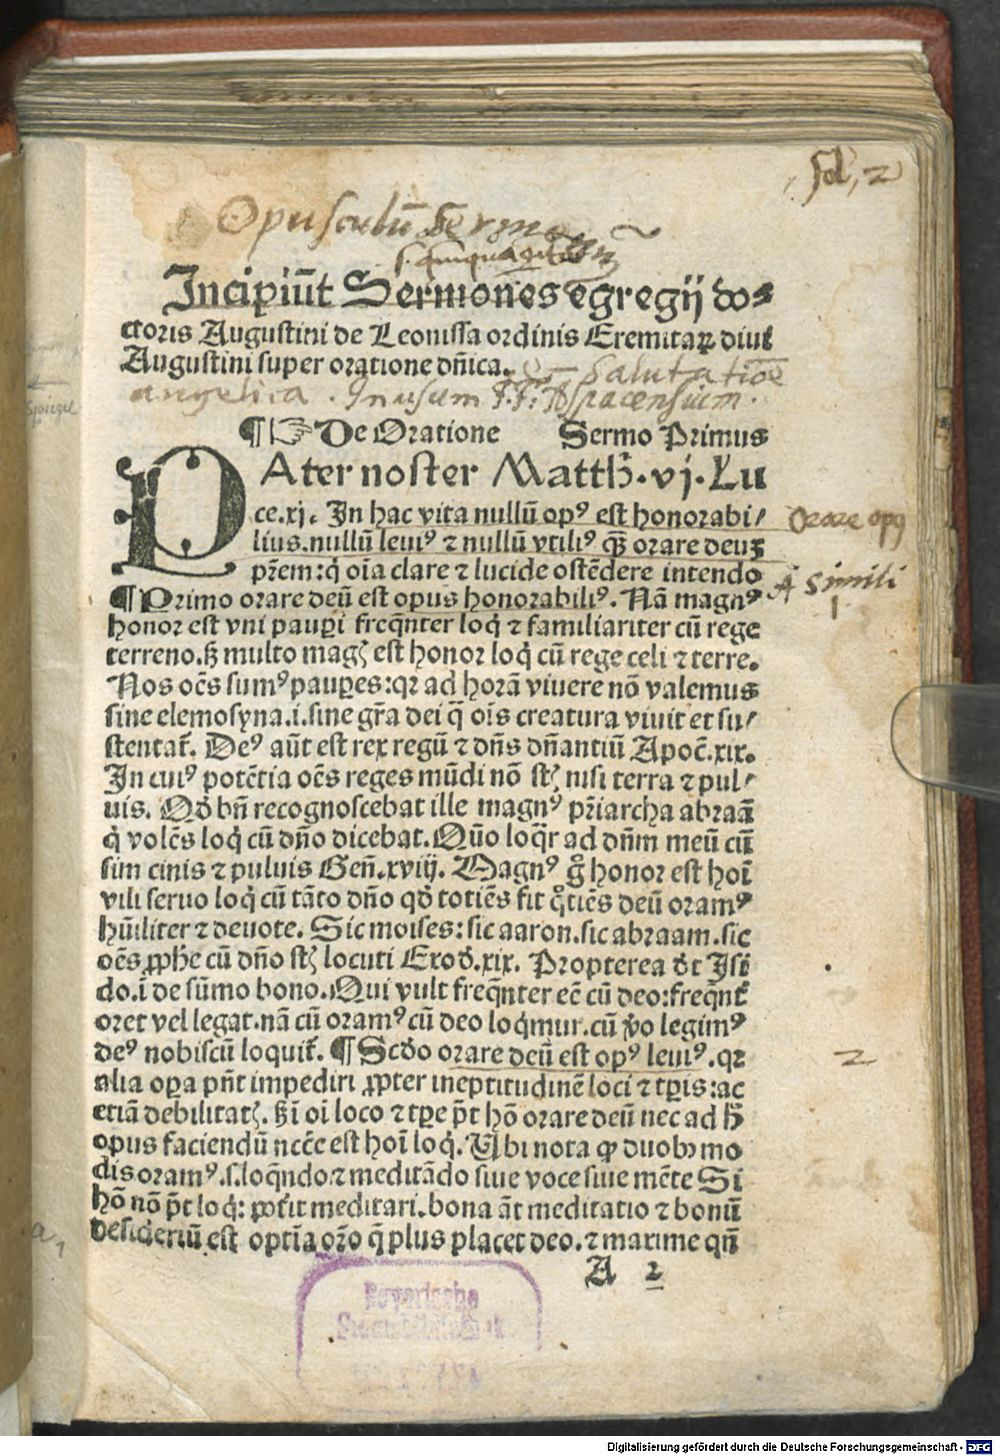 fol, 2
Opusculū Sermonū
s. quinquaginta
Incipiūt Sermones egregij do⸗
ctoris Augustini de Leonissa ordinis Eremitaꝝ diui
Augustini super oratione dñica. Salutatiōe
angelica. In usum F.F.
¶ ☞ De Oratione Sermo Primus
PAter noster Matth̄.vj.Lu
ce.xj. In hac vita nullū opꝰ est honorabi/
lius.nullū leuiꝰ ⁊ nullū vtiliꝰ qꝫ orare deuꝫ
Orare opꝰ
pr̄em:q̇ oīa clare ⁊ lucide ostēdere intendo
A simili
1
¶ Primo orare deū est opus honorabiliꝰ. Nā magnꝰ
honor est vni pauꝑi freq̄nter loq̇ ⁊ familiariter cū rege
terreno.ꝭꝫ multo magꝭ est honor loq̇ cū rege celi ⁊ terre.
Nos oēs sumꝰ pauꝑes:qꝛ ad horā viuere nō valemus
sine elemosyna.i.sine gr̄a dei q̄ oīs creatura viuit et su/
stentat̄. Deꝰ aūt est rex regū ⁊ dñs dñantiū Apoc̄.xix.
In cuiꝰ potētia oēs reges mūdi nō st̄ nisi terra ⁊ pul/
uis. Qđ bn̄ recognoscebat ille magnꝰ pr̄iarcha abraā
q̇ volēs loq̇ cū dño dicebat.Quō loq̄r ad dñm meū cū
sim cinis ⁊ puluis Gen̄.xviij. Magnꝰ g̊ honor est hoī
vili seruo loq̇ cū tāto dño qđ totiēs fit q̊tiēs deū oramꝰ
hūiliter ⁊ deuote. Sic moises:sic aaron.sic abraam.sic
oēs ꝓph̄e cū dño st̄ locuti Exođ.xix. Propterea đt Isi
do.ī de sūmo bono.Qui vult freq̄nter eē cū deo:freq̄nt̄
oret vel legat.nā cū oramꝰ cū deo loq̇mur.cū v̊o legimꝰ
deꝰ nobiscū loquit̄. ¶ Scđo orare deū est opꝰ leuiꝰ.qꝛ
2
alia oꝑa pn̄t impediri ꝓpter ineptitudinē loci ⁊ tꝑis:ac
etiā debilitatꝭ. ꝭꝫ ī oī loco ⁊ tꝑe pt̄ hō orare deū nec ad h̄
opus faciendū nccē est hoī loq̇. Ubi nota ꝙ duobꝰ mo
dis oramꝰ.s.loq̄ndo.⁊ meditādo siue voce siue mēte Si
hō nō pt̄ loq̇: pōt̄ meditari.bona āt meditatio ⁊ bonū
desideriū est optīa or̄o q̄ plus placet deo.⁊ maxime qn̄
A 2
a, 1
Bayerische
Staatsbibliothek
Digitalisierung gefördert durch die Deutsche Forschungsgemeinschaft - DFG